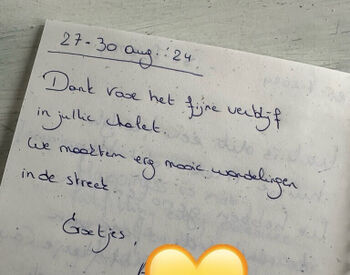 27-30 aug. '24
Dank voor het fijne verblijf
in jullie chalet.
We maakten erg mooie wandelingen
in de streek.
Groetjes,